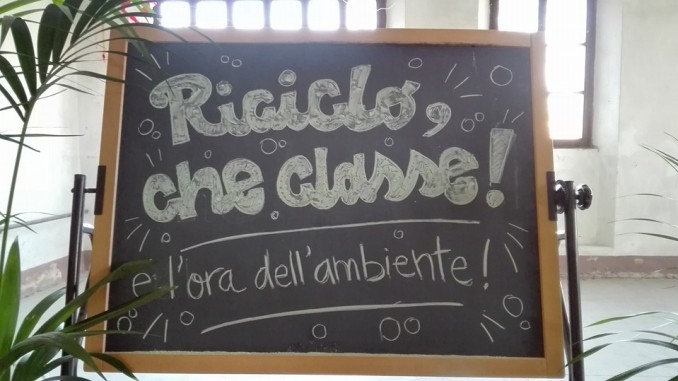 Riciclo,
che classe!
e l'ora dell'ambiente!